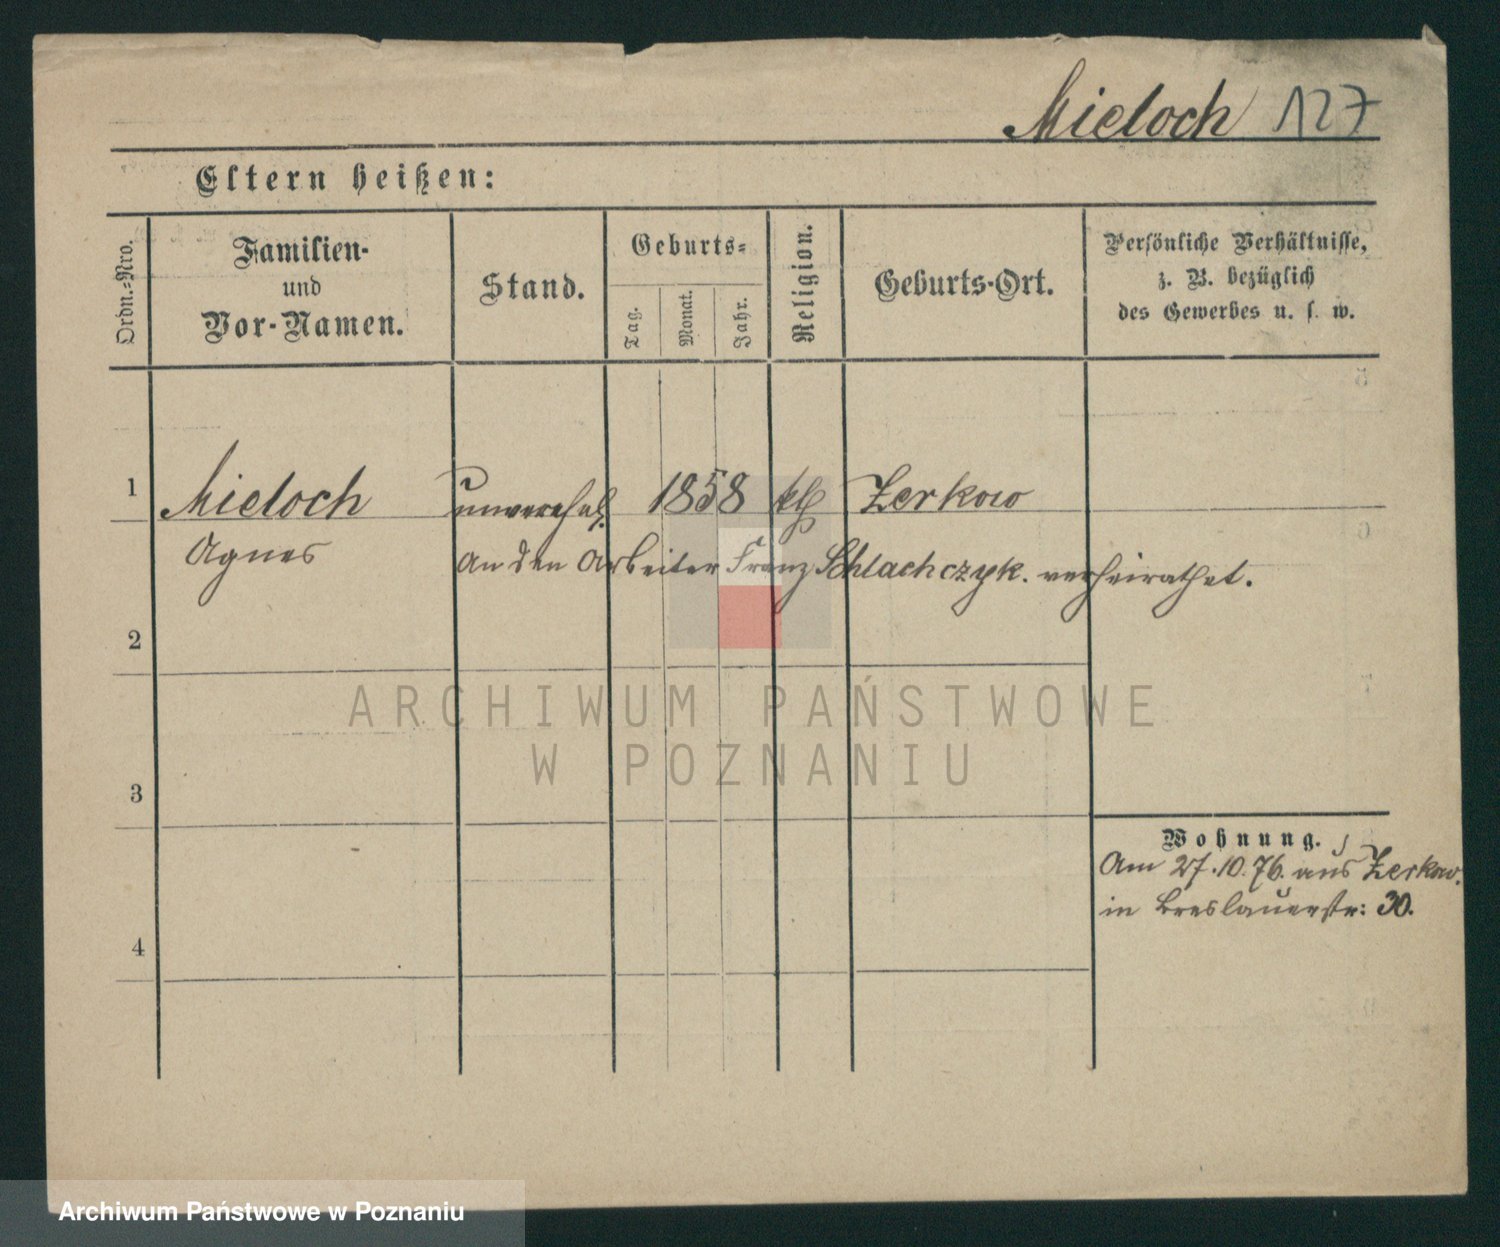 Mieloch 127
Eltern heißen:
Ordn.-Nro.
Familien-
und
Vor-Namen.
Stand.
Geburts-
Tag.
Monat.
Jahr.
Religion.
Geburts-Ort.
Persönliche Verhältnisse,
z. B. bezüglich
des Gewerbes u. s. w.
1 Mieloch unverehel. 1858 kth Zerkow
Agnes An den Arbeiter Franz Schlachczyk. verheirathet.
2
3
4
Wohnung.
Am 27.10.76. aus Zerkow.
in Breslauerstr: 30.
ARCHIWUM PAŃSTWOWE
W POZNANIU
Archiwum Państwowe w Poznaniu